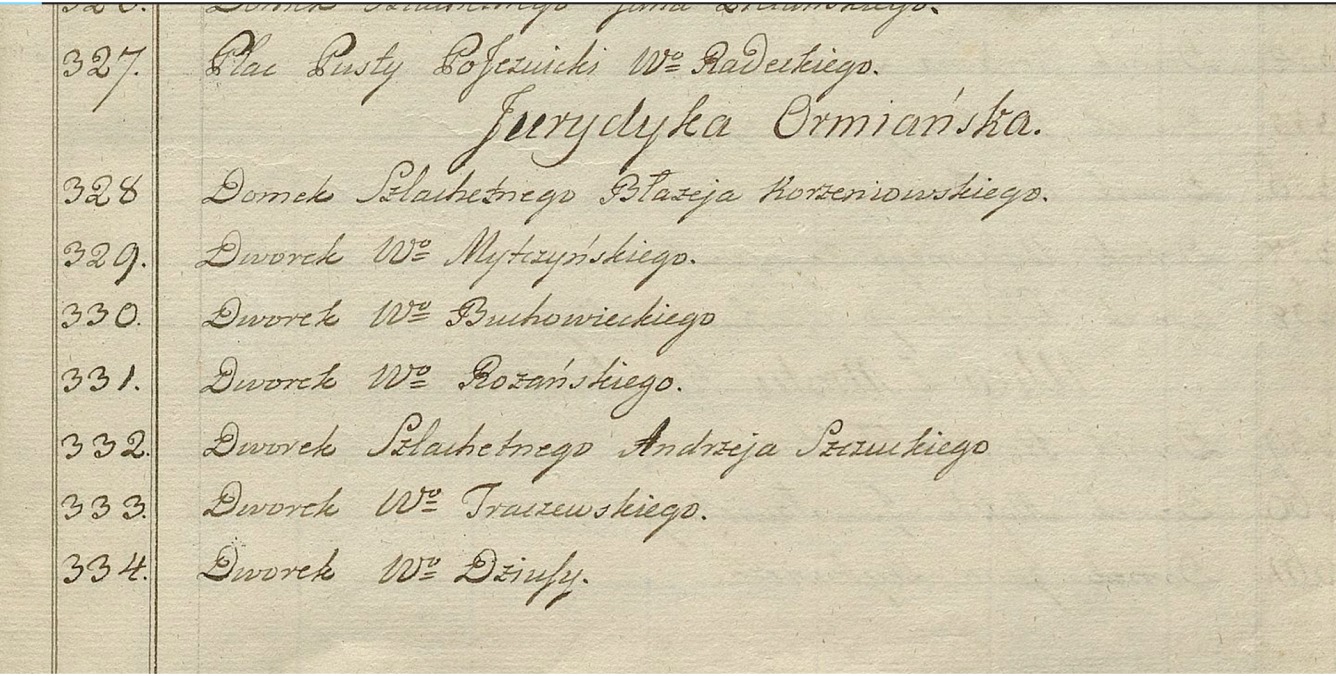 326. Domek Szlachetnego Jana
327. Plac Pusty PoJezuicki Wo Radeckiego.
Jurydyka Ormiańska.
328 Domek Szlachetnego Błażeja Korzeniowskiego.
329. Dworek Wo Mytczyńskiego.
330. Dworek Wo Buchowieckiego
331. Dworek Wo Rozańskiego.
332. Dworek Szlachetnego Andrzeja Szczuckiego
333. Dworek Wo Traczewskiego.
334. Dworek Wo Dziusy.